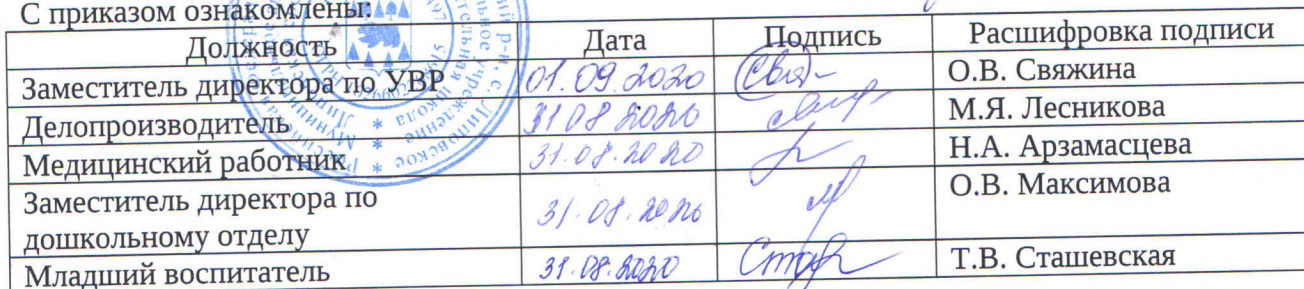 С приказом ознакомлены:
Должность Дата Подпись Расшифровка подписи
Заместитель директора по УВР 01.09.2020 О.В. Свяжина
Делопроизводитель 31.08.2020 М.Я. Лесникова
Медицинский работник 31.08.2020 Н.А. Арзамасцева
Заместитель директора по
дошкольному отделу 31.08.2020 О.В. Максимова
Младший воспитатель 31.08.2020 Т.В. Сташевская